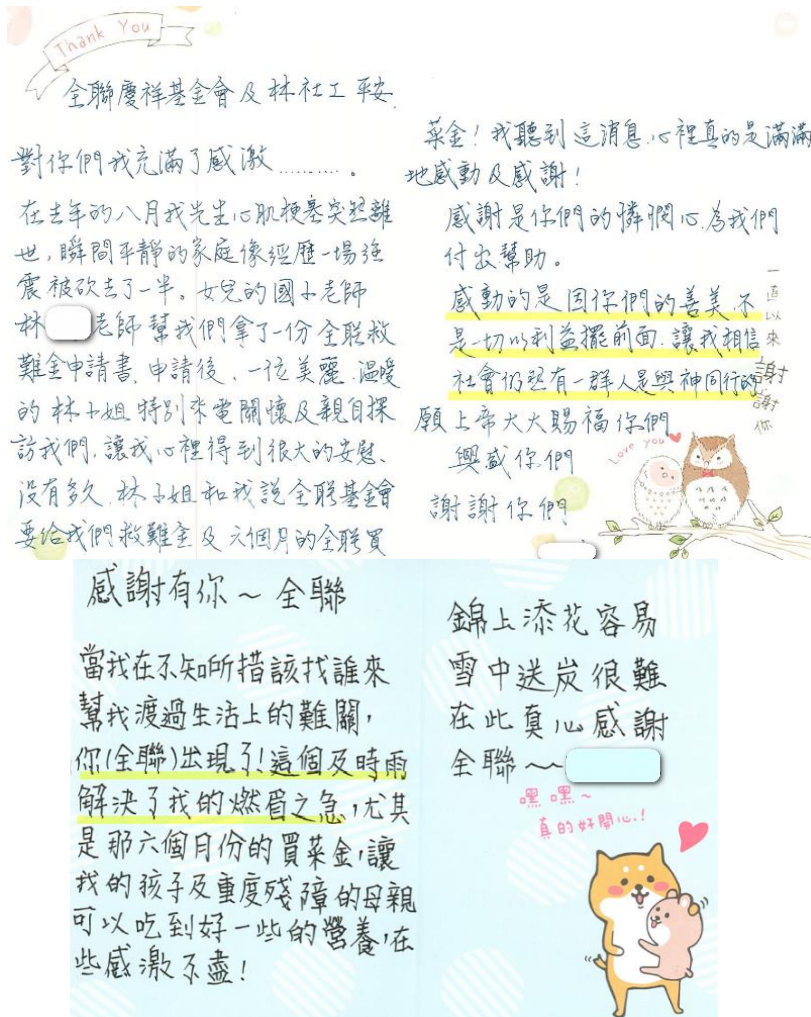 Thank You
全聯慶祥基金會及林社工平安.
對你們我充滿了感激..........。
在去年的八月我先生心肌梗塞突然離
世,瞬間平靜的家庭像經歷一場強
震被砍去了一半。女兒的國小老師
林 老師幫我們拿了一份全联救
難金申請書,申請後,一位美麗、溫暖
的林小姐特別來電關懷及親自探
訪我們,讓我心裡得到很大的安慰、
沒有多久,林小姐和我說全联基金會
要给我們救難金及六個月的全联買
菜金!我聽到這消息,心裡真的是滿滿
地感動及感謝!
感謝是你們的憐憫心,為我們
付出幫助。
感動的是因你們的善美,不
是一切以利益擺前面,讓我相信
社會仍然有一群人是與神同行的
一直以來
謝謝你
願上帝大大賜福你們
興盛你們
謝謝你們
Love you
感謝有你~全聯
當我在不知所措該找誰來
幫我渡過生活上的難關,
你(全聯)出現了!這個及時雨
解決了我的燃眉之急,尤其
是那六個月份的買菜金,讓
我的孩子及重度殘障的母親
可以吃到好一些的營養,在
些感激不盡!
錦上添花容易
雪中送炭很難
在此真心感謝
全聯~~
嘿嘿~
真的好開心!